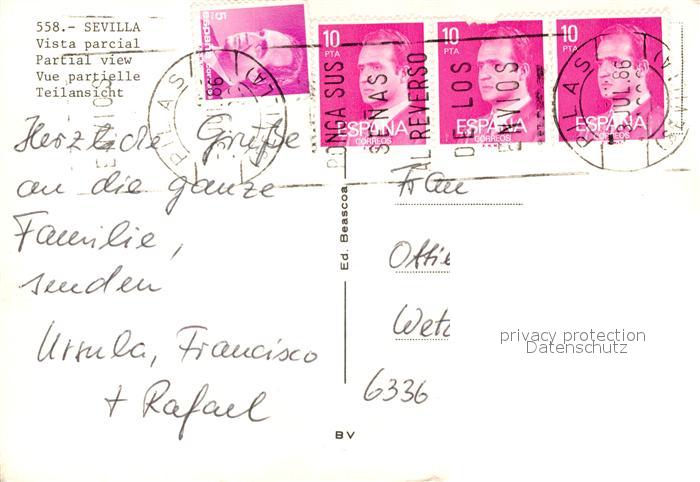 558.- SEVILLA
Vista parcial
Partial view
Vue partielle
Teilansicht
Herzliche Grüße
an die ganze
Familie,
senden
Ursula, Francisco
+ Rafael
Ed. Beascoa
BV
5
10
PTA
ESPAÑA
CORREOS
10
PTA
ESPAÑA
CORREOS
10
PTA
ESPAÑA
CORREOS
PONGA SUS
SEÑAS
AL REVERSO
DE LOS
ENVIOS
PILAS
PILAS
JUL. 86
Frau
Wetz
6336
privacy protection
Datenschutz